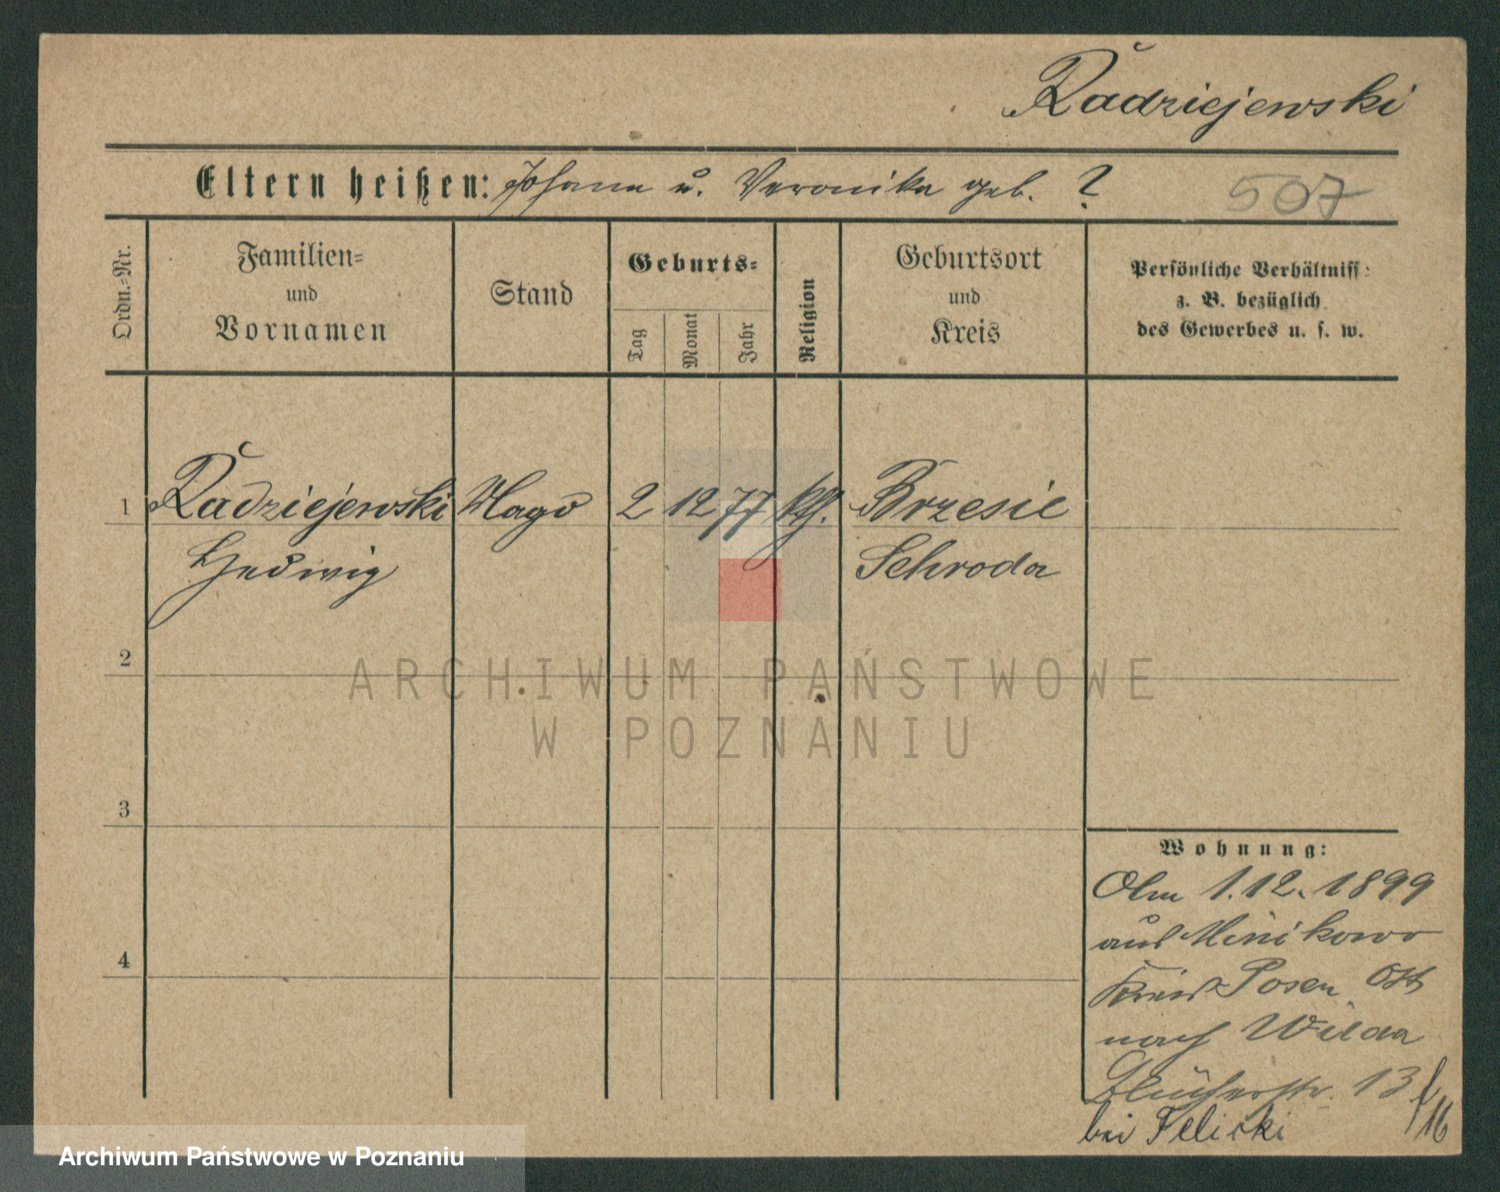 Radziejewski
Eltern heißen: Johann u. Veronika geb. ?
507
Ordn.-Nr.
Familien-
und
Vornamen
Stand
Geburts-
Tag
Monat
Jahr
Religion
Geburtsort
und
Kreis
Persönliche Verhältniss
z. B. bezüglich
des Gewerbes u. s. w.
1 Radziejewski Magd 2 12 77 kth. Brzesie
Hedwig Schroda
2
3
4
Wohnung:
Am 1.12.1899
aus Minikowo
Kreis Posen Ost
nach Wilda
Blücherstr. 13
bei Felicki
ARCHIWUM PAŃSTWOWE
W POZNANIU
Archiwum Państwowe w Poznaniu